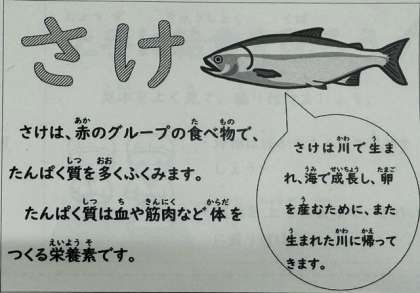 さけ
さけは、赤のグループの食べ物で、
たんぱく質を多くふくみます。
たんぱく質は血や筋肉など体を
つくる栄養素です。
さけは川で生ま
れ、海で成長し、卵
を産むために、また
生まれた川に帰って
きます。